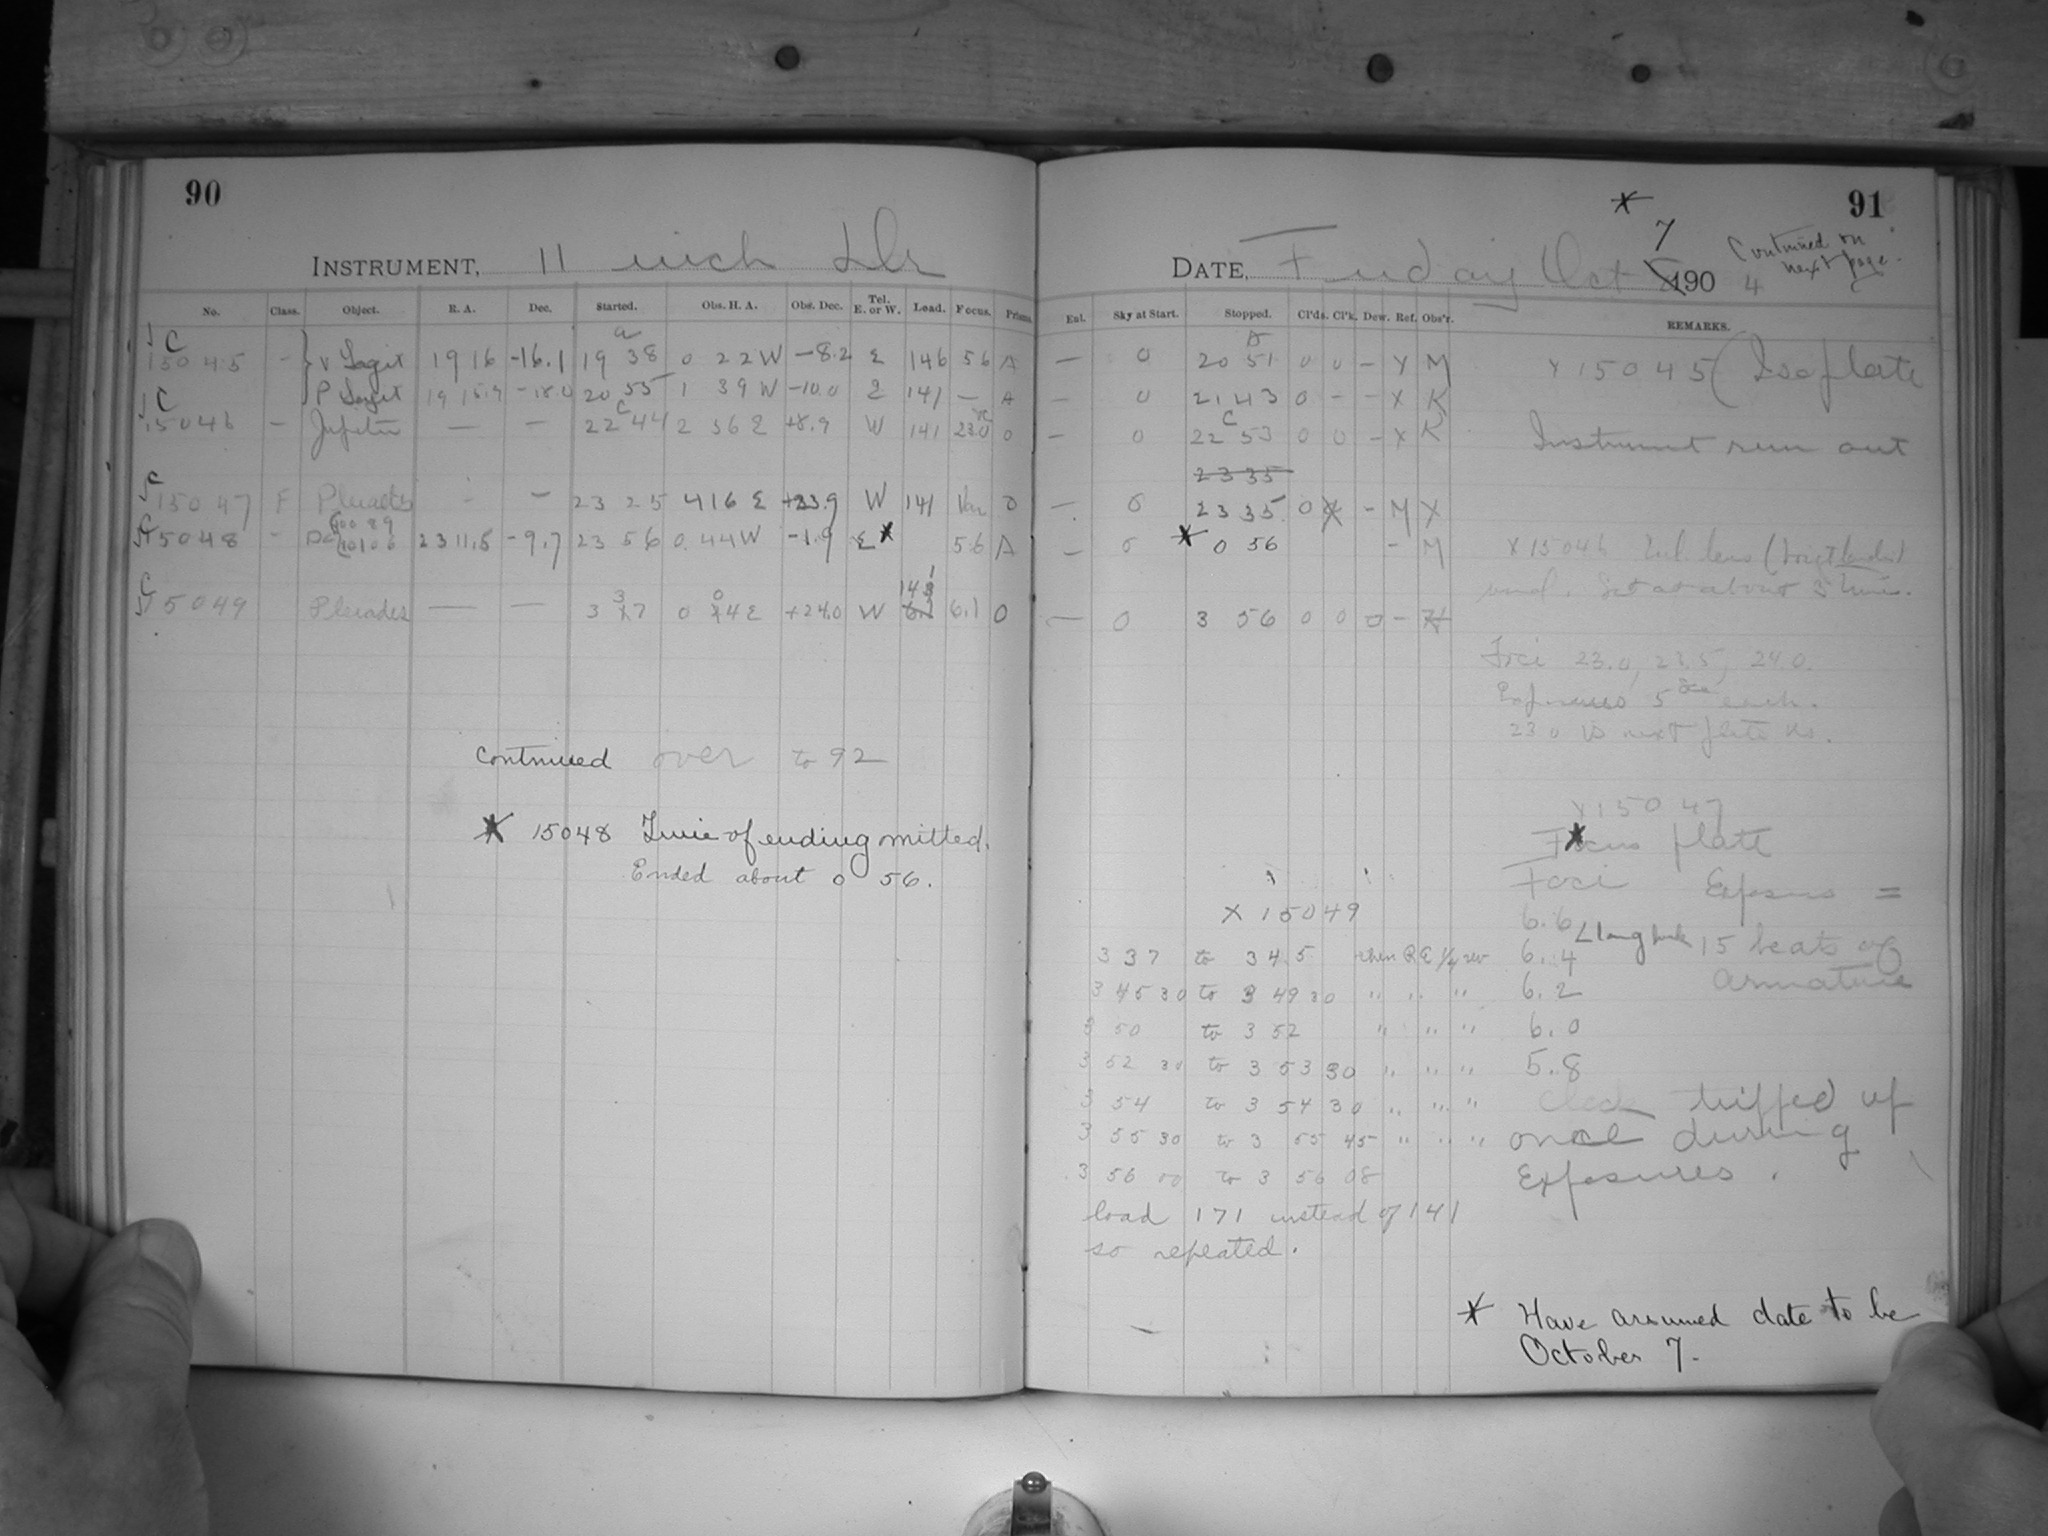 90
INSTRUMENT, 11 inch
No. Class. Object. R. A. Dec. Started. Obs. H. A. Obs. Dec. Tel. E. or W. Load. Focus. Prisms.
C
15045 - υ Sagit 19 16 -16.1 19 38 0 22 W -8.2 E 146 56 A
P Sagit 20 55 1 39 W -10.0 E 141 — A
C
15046 - Jupiter — — 22 44 2 36 E +8.9 W 141 23.0 0
C
15047 F Pleiades - — 23 25 4 16 E +23.9 W 141 Var 0
C
15048 - 23 11.5 -9.7 23 56 0 44 W -1.9 E* 56 A
C
15049 Pleiades — — 3 37 0 E +24.0 W 6.1 0
Continued over to 92
* 15048 Time of ending omitted.
Ended about 0 56.
* 91
7
DATE, Friday Oct 190 4
Continued on
next page.
Eul. Sky at Start. Stopped. Cl'ds. Cl'k. Dew. Ref. Obs'r. REMARKS.
— 0 20 51 0 0 - Y M X 15045 (Iso plate
— 0 21 43 0 - - X K
C
— 0 22 53 0 0 - X K Instrument run out
23 35
— 0 23 35 0 - M X
— * 0 56 - M X 15046 lens
used. Set at about 3
— 0 3 56 0 0 0 -
Foci 23.0, 23.5, 24.0.
Exposures 5 each.
23.0 is next plate No.
X 15047
* Focus plate
Foci Exposure =
X 15049 6.6
3 37 to 3 45 then R E 1/4 rev 6.4 15 beats of
3 45 30 to 3 49 30 " " " 6.2 armature
3 50 to 3 52 " " " 6.0
3 52 30 to 3 53 30 " " " 5.8
3 54 to 3 54 30 " " " Clock tripped up
3 55 30 to 3 55 45 " " " once during
3 56 00 to 3 56 08 Exposures.
load 171 instead of 141
so repeated.
* Have assumed date to be
October 7.